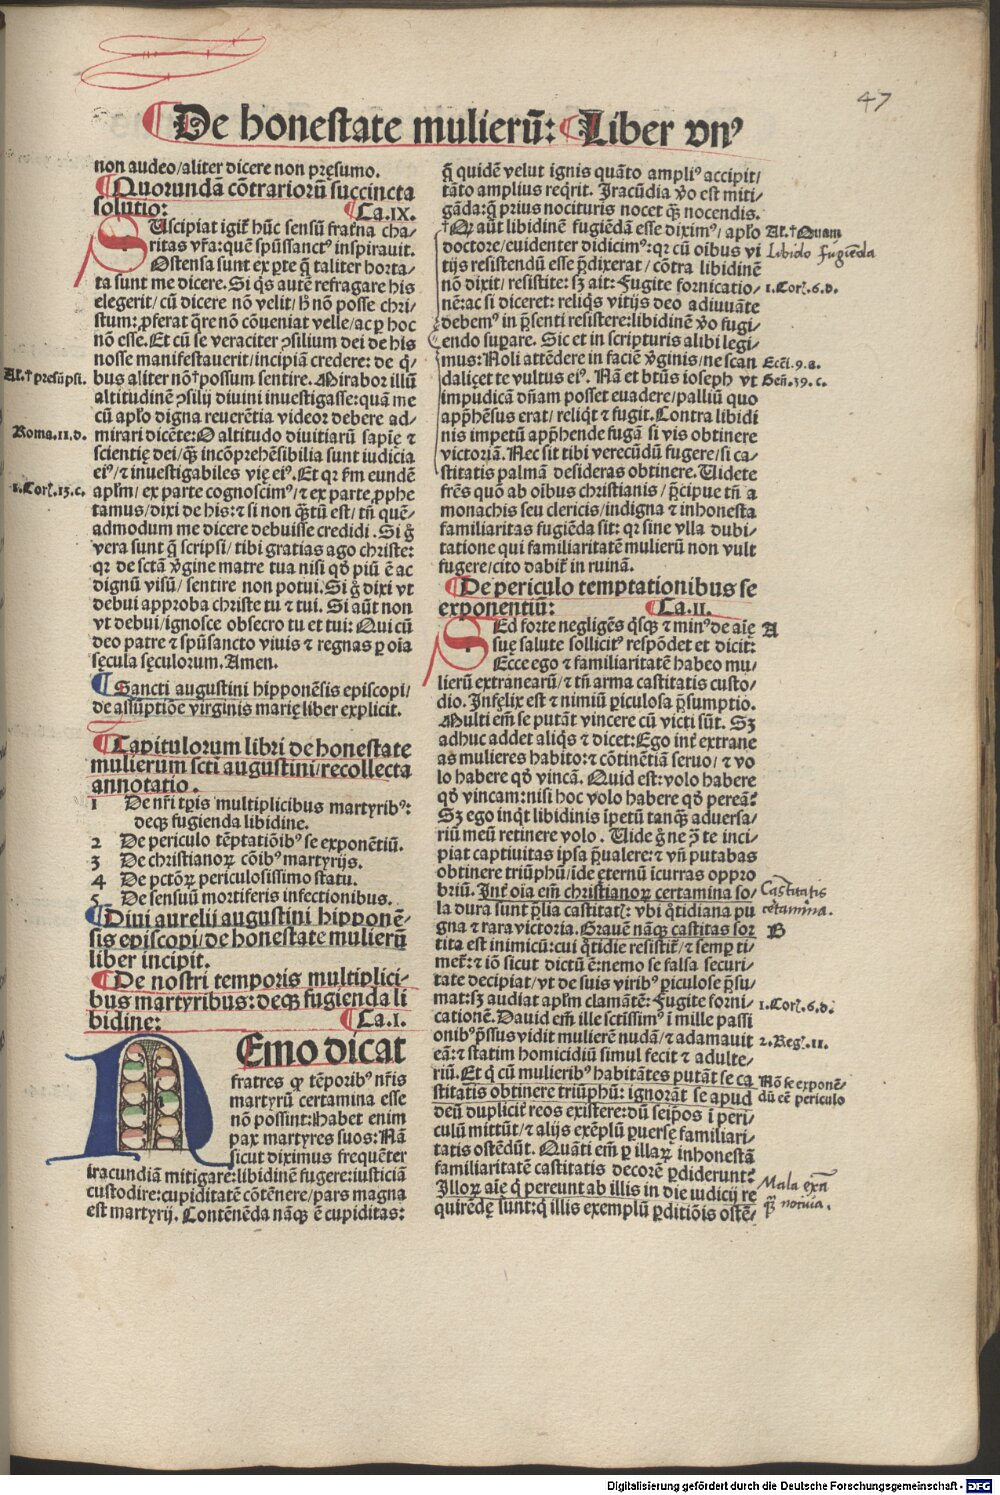 47
De honestate mulierū: Liber vnꝰ
non audeo/aliter dicere non pręsumo.
Quorundā cōtrariorū succincta
solutio: Ca.IX.
SUscipiat igit̄ hūc sensū frat̄na cha-
ritas vr̄a: quē spūssanctꝰ inspirauit.
Ostensa sunt ex ꝑte q̄ taliter horta-
ta sunt me dicere. Si q̇s autē refragare his
elegerit/ cū dicere nō velit/ h̄ nō posse chri-
stum: ꝓferat q̄re nō cōueniat velle/ ac ꝑ hoc
nō esse. Et cū se veraciter ꝯsilium dei de his
nosse manifestauerit/ incipiā credere: de q̇-
Al.† presūpsi.
bus aliter nō †possum sentire. Mirabor illū
altitudinē ꝯsilij diuini inuestigasse: quā me
cū apl̄o digna reuerētia videor debere ad-
Roma.11.d.
mirari dicēte: O altitudo diuitiarū sapię ⁊
scientię dei/ ꝙ̄ incōprehēsibilia sunt iudicia
eiꝰ/ ⁊ inuestigabiles vię eiꝰ. Et qꝛ ſm eundē
1.Corī.13.c.
apl̄m/ ex parte cognoscimꝰ/ ⁊ ex parte ꝓphe
tamus/ dixi de his: ⁊ si non q̄ꝫtū est/ tn̄ quē-
admodum me dicere debuisse credidi. Si g̊
vera sunt q̄ scripsi/ tibi gratias ago christe:
qꝛ de sctā v̄gine matre tua nisi qd̓ piū ē ac
dignū visū/ sentire non potui. Si g̊ dixi vt
debui approba christe tu ⁊ tui. Si aūt non
vt debui/ ignosce obsecro tu et tui: Qui cū
deo patre ⁊ spūsancto viuis ⁊ regnas ꝑ oīa
sęcula sęculorum. Amen.
Sancti augustini hipponēsis episcopi/
de assūptiōe virginis marię liber explicit.
Capitulorum libri de honestate
mulierum scti augustini/ recollecta
annotatio.
1 De nr̄i tp̄is multiplicibus martyribꝰ:
deqꝫ fugienda libidine.
2 De periculo tēptatiōibꝰ se exponētiū.
3 De christianoꝝ cōibꝰ martyrijs.
4 De pctōꝝ periculosissimo statu.
5 De sensuū mortiferis infectionibus.
Diui aurelii augustini hipponē-
sis episcopi/ de honestate mulierū
liber incipit.
De nostri temporis multiplici-
bus martyribus: deqꝫ fugienda li
bidine: Ca.I.
NEmo dicat
fratres qꝫ tēporibꝰ nr̄is
martyrū certamina esse
nō possint: Habet enim
pax martyres suos: Nā
sicut diximus frequēter
iracundiā mitigare: libidinē fugere: iusticiā
custodire: cupiditatē cōtēnere/ pars magna
est martyrij. Contēnēda nāqꝫ ē cupiditas:
q̄ quidē velut ignis quāto ampliꝰ accipit/
tāto amplius reqr̄it. Iracūdia v̓o est miti-
gāda: q̄ prius nocituris nocet qꝫ nocendis.
†Qꝛ aūt libidinē fugiēdā esse diximꝰ/ apl̄o
Al.†Quam
doctore/ euidenter didicimꝰ: qꝛ cū oībus vi
Libido fugiēda
tijs resistendū esse p̄dixerat/ cōtra libidinē
nō dixit/ resistite: sꝫ ait: Fugite fornicatio-
1.Corī.6.d.
nē: ac si diceret: reliq̇s vitijs deo adiuuāte
debemꝰ in p̄senti resistere: libidinē v̓o fugi-
endo suꝑare. Sic et in scripturis alibi legi-
mus: Noli attēdere in faciē v̄ginis/ ne scan
Eccī.9.a.
dalicet te vultus eiꝰ. Nā et btūs ioseph vt
Gen̄.39.c.
impudicā dn̄am posset euadere/ palliū quo
app̄hēsus erat/ reliqt̄ ⁊ fugit. Contra libidi
nis impetū app̄hende fugā si vis obtinere
victoriā. Nec sit tibi verecūdū fugere/ si ca-
stitatis palmā desideras obtinere. Uidete
fr̄es quō ab oībus christianis/ p̄cipue tn̄ a
monachis seu clericis/ indigna ⁊ inhonesta
familiaritas fugiēda sit: qꝛ sine vlla dubi-
tatione qui familiaritatē mulierū non vult
fugere/ cito dabit̄ in ruinā.
De periculo temptationibus se
exponentiū: Ca.II.
SEd forte negligēs q̇sqꝫ ⁊ minꝰ de aīę
A
suę salute sollicitꝰ respōdet et dicit:
Ecce ego ⁊ familiaritatē habeo mu-
lierū extranearū/ ⁊ tn̄ arma castitatis custo-
dio. Infęlix est ⁊ nimiū ꝑiculosa p̄sumptio.
Multi em̄ se putāt vincere cū victi sūt. Sꝫ
adhuc addet aliq̇s ⁊ dicet: Ego int̄ extrane
as mulieres habito: ⁊ cōtinētiā seruo/ ⁊ vo
lo habere qd̓ vincā. Quid est: volo habere
qd̓ vincam: nisi hoc volo habere qd̓ pereā?
Sꝫ ego inqt̄ libidinis īpetū tanqꝫ aduersa-
riū meū retinere volo. Uide g̊ ne ꝯ̄ te inci-
piat captiuitas ipsa p̄ualere: ⁊ vn̄ putabas
obtinere triūphū/ īde ęternū īcurras oppro
briū. Int̄ oīa em̄ christianoꝝ certamina so-
Castitatis
la dura sunt p̄lia castitatꝭ: vbi q̄tidiana pu
cetamīna.
gna ⁊ rara victoria. Grauē nāqꝫ castitas sor
B
tita est inimicū: cui q̄tidie resistit̄/ ⁊ semꝑ ti-
met̄: ⁊ iō sicut dictū ē: nemo se falsa securi-
tate decipiat/ vt de suis viribꝰ ꝑiculose p̄su-
mat: sꝫ audiat apl̄m clamātē: Fugite forni-
1.Corī.6.d.
cationē. Dauid em̄ ille sctissimꝰ ī mille passi
onibꝰ p̄ssus vidit mulierē nudā/ ⁊ adamauit
2.Reḡ.11.
eā: ⁊ statim homicidiū simul fecit ⁊ adulte-
riū. Et q̇ cū mulieribꝰ habitātes putāt se ca
Nō se exponē-
stitatis obtinere triūphū: ignorāt se apud
dū eē periculo
deū duplicit̄ reos existere: dū seip̄os ī peri-
culū mittūt/ ⁊ alijs exēplū ꝑuersę familiari-
tatis ostēdūt. Quāti em̄ ꝑ illaꝝ inhonestā
familiaritatē castitatis decorē ꝑdiderunt:
Illoꝝ aīe q̇ pereunt ab illis in die iudicij re
Mala exā
quirēdę sunt: q̇ illis exemplū ꝑditiōis ostē-
Digitalisierung gefördert durch die Deutsche Forschungsgemeinschaft - DFG